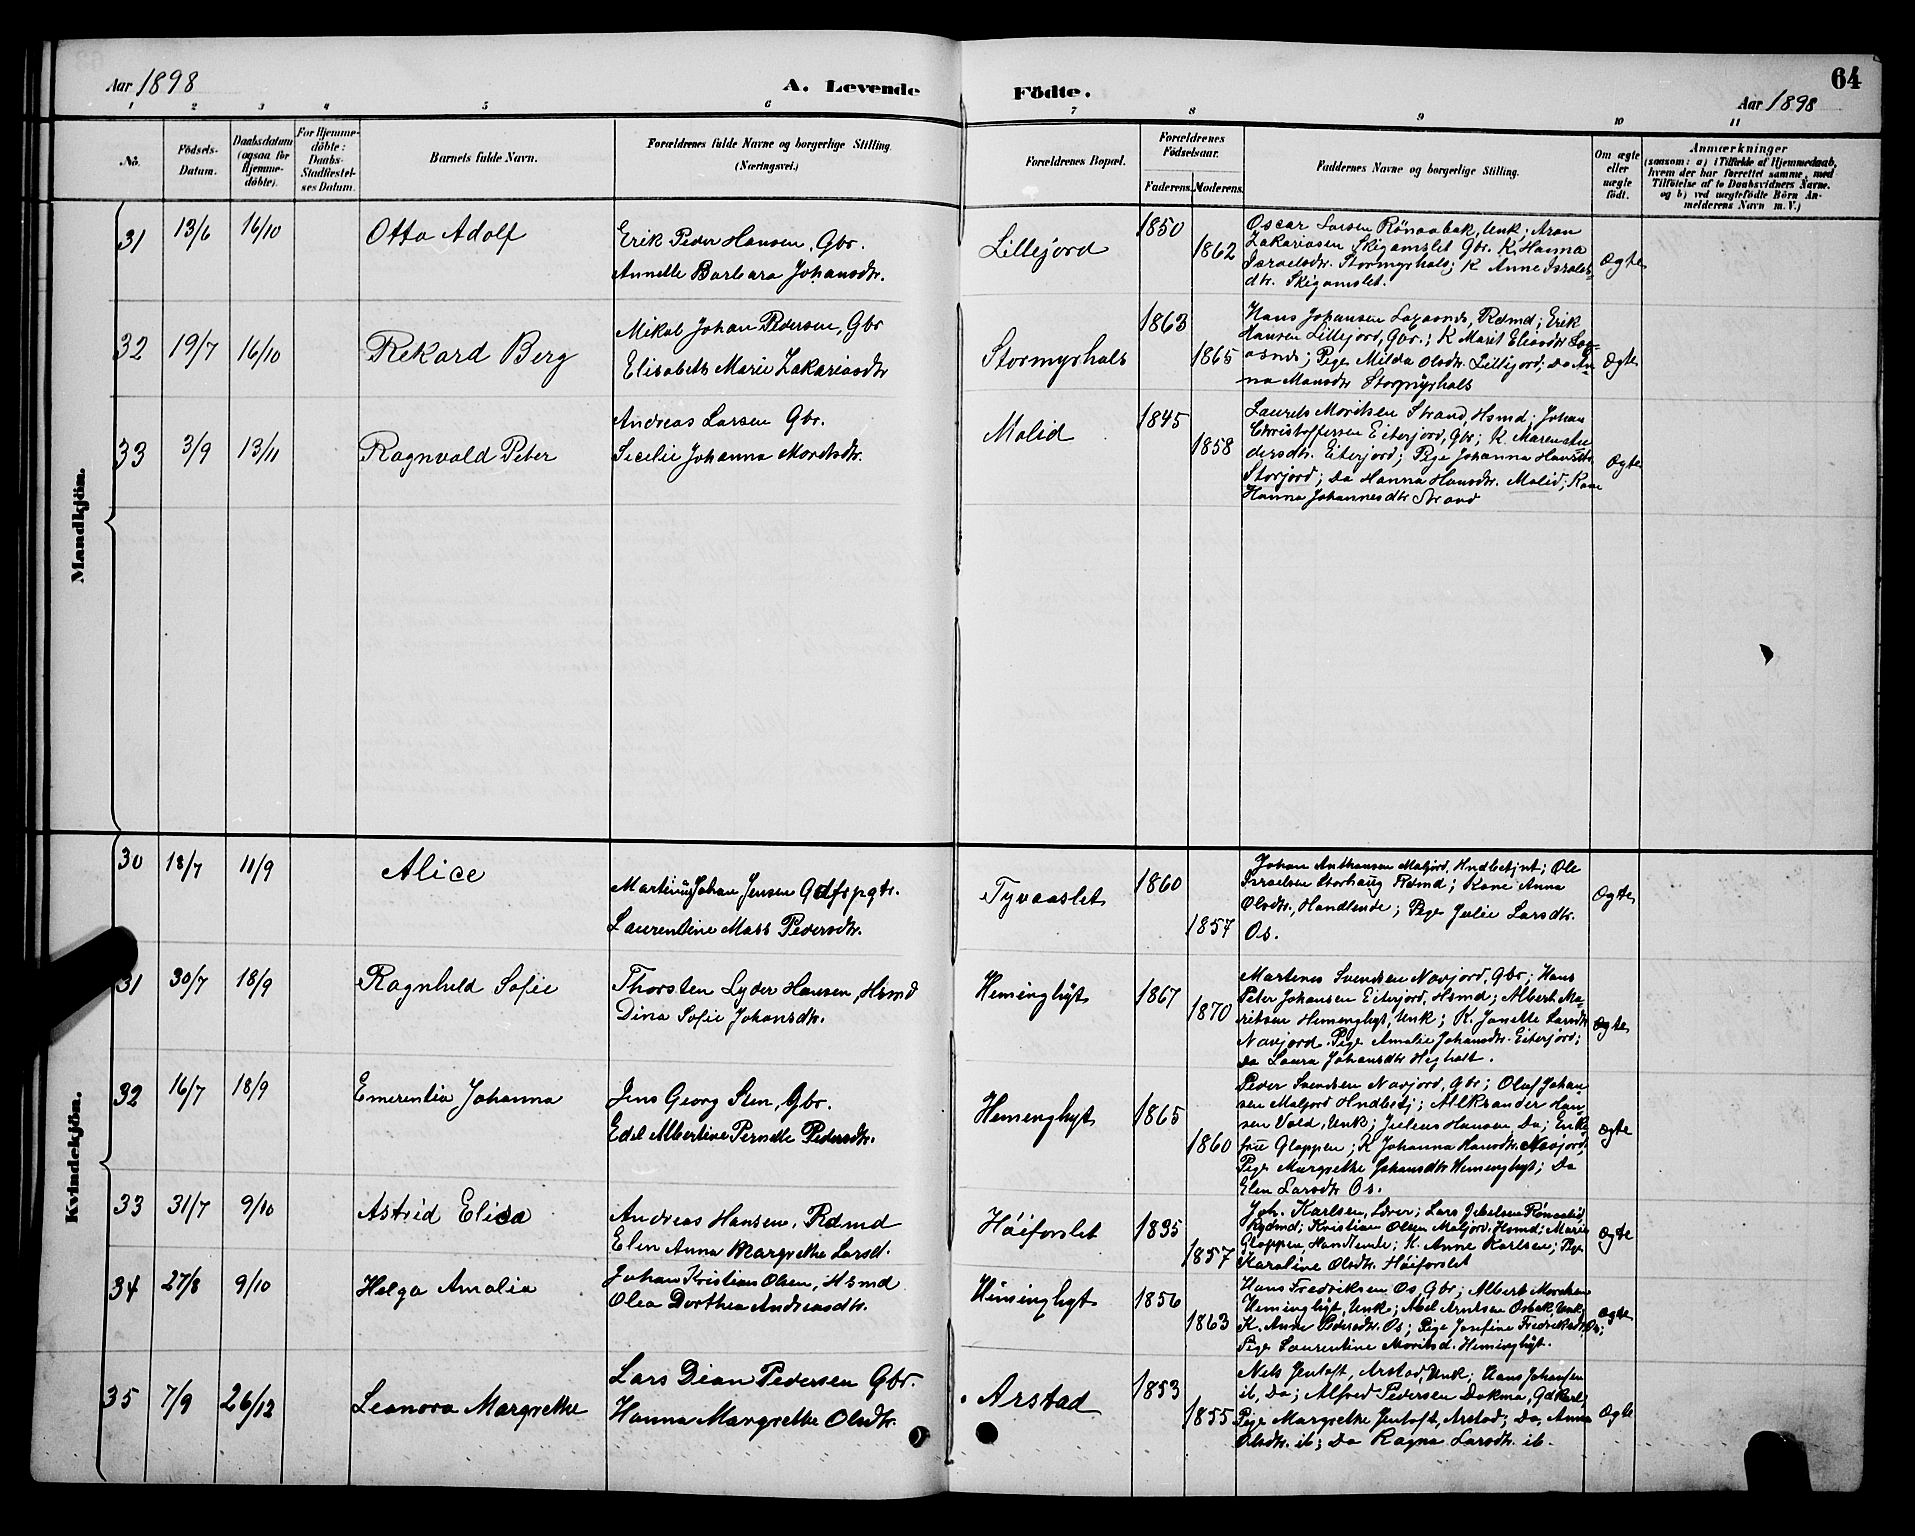 Aar 1898
A. Levende Födte.
64
Aar 1898
1 2 3 4 5 6 7 8 9 10 11
No.
Födsels-Datum.
Daabsdatum (ogsaa for Hjemme-döbte).
For Hjemme-döbte: Daabs-Stadfæstel-ses Datum.
Barnets fulde Navn.
Forældrenes fulde Navne og borgerlige Stilling. (Næringsvei.)
Forældrenes Bopæl.
Forældrenes Födselsaar.
Faderens. Moderens.
Faddernes Navne og borgerlige Stilling.
Om ægte eller uægte født.
Anmærkninger
(saasom: a) i Tilfælde af Hjemmedaab, hvem der har forrettet samme, med Tilföielse af to Daabsvidners Navne. og b) ved uægtefödte Börn An-melderens Navn m. V.)
Mandkjön.
31 13/6 16/10 Otto Adolf
Erik Peder Hansen, Gbr.
Annette Barbara Johansdtr.
Lillejord 1850 1862
Oscar Larsen Rönaabak, Unk; Aron
Zakariasen Skigamslet Gbr. K. Hanna
Israelsdtr. Stormyrhals; K Anne Israels-
dtr. Skigamslet.
Ægte
32 19/7 16/10 Rekard Berg
Mikal Johan Pedersen, Gbr
Elisabeth Marie Zakariasdtr
Stormyrhals 1863 1865
Hans Johansen Laxaanes, Rdmd; Erik
Hansen Lillejord, Gbr.; K Marit Eliasdtr Lax-
aanes; Pige Milda Olsdtr. Lillejord; Do An-
na Monsdtr Stormyrhals
Ægte
33 3/9 13/11 Ragnvald Peter
Andreas Larsen Gbr.
Secelie Johanna Moritsdtr.
Molid 1845 1858
Laurits Moritsen Strand, Hsmd; Johan
Christoffersen Eiterjord, Gbr; K. Maren
dersdtr. Eiterjord; Pige Johanna
Storjord; Do Hanna Hansdtr. Molid; Kone
Hanna Johannesdtr Strand
Ægte
Kvindekjön.
30 18/7 11/9 Alice
Martinus Johan Jensen
Laurentine Mass Pedersdtr.
Tyvaaslet 1860 1857
Johan Anthonsen Maljord, Hndbetjnt; Ole
Israelsen Storhaug Rdmd; Kone Anna
Olsdtr., Handlende; Pige Julie Larsdtr.
Os.
Ægte
31 30/7 18/9 Ragnhild Sofie
Thorsten Lyder Hansen, Hsmd
Dina Sofie Johansdtr.
Heminghyt 1867 1870
Martines Svendsen Navjord, Gbr; Hans
Peter Johansen Eiterjord, Hsmd; Albert Mo-
ritsen Heminghyt, Unk; K. Janette Larsdtr
Navjord. Pige Amalie Johansdtr. Eiterjord;
Do Laura Johansdtr
Ægte
32 16/7 18/9 Emerentia Johanna
Jens Georg Sten, Gbr.
Edel Albertine Pernelle Pedersdtr.
Hemenghyt 1865 1860
Peder Svendsen Navjord, Gbr; Oluf Johan-
sen Maljord Hndbetj; Alksander Han-
sen Vold, Unk; Julius Hansen Do; Enke-
frue Gloppen; K Johanna Hansdtr. Navjord;
Pige Margrethe Johansdtr Hemenghyt; Do
Elen Larsdtr Os.
Ægte
33 31/7 9/10 Astrid Elisa
Andreas Hansen, Rdmd
Elen Anna Margrethe Larsd.
Höiforslet 1835 1857
Joh. Karlsen, Lærer; Lars
Rydmd; Kristian Olsen Maljord, Hsmd; Marie
Gloppen Handlende; K. Anne Karlsen; Pige
Karoline Olsdtr. Höiforslet
Ægte
34 27/8 9/10 Helga Amalia
Johan Kristian Olsen, Hsmd
Olea Dorthea Andreasdtr.
Heminghyt 1856 1863
Hans Fredriksen Os Gbr; Albert Moritsen
Heminghyt, Unk; Abel Arntsen Osbak Unk;
K. Anne Pedersdtr. Os; Pige Josefine Fredriksdtr. Os;
Pige Laurentine Moritsd. Heminghyt.
Ægte
35 7/9 26/12 Leonora Margrethe
Lars Dian Pedersen Gbr.
Hanna Margrethe Olsdtr.
Arstad 1853 1855
Nels Jentoft, Arstad, Unk; Hans Johansen
ib, Do; Alfred Pedersen Dokmo, Gdkarl;
Pige Margrethe Jentoft, Arstad; Do, Anna
Olsdtr. ib; Do Ragna Larsdtr. ib.
Ægte